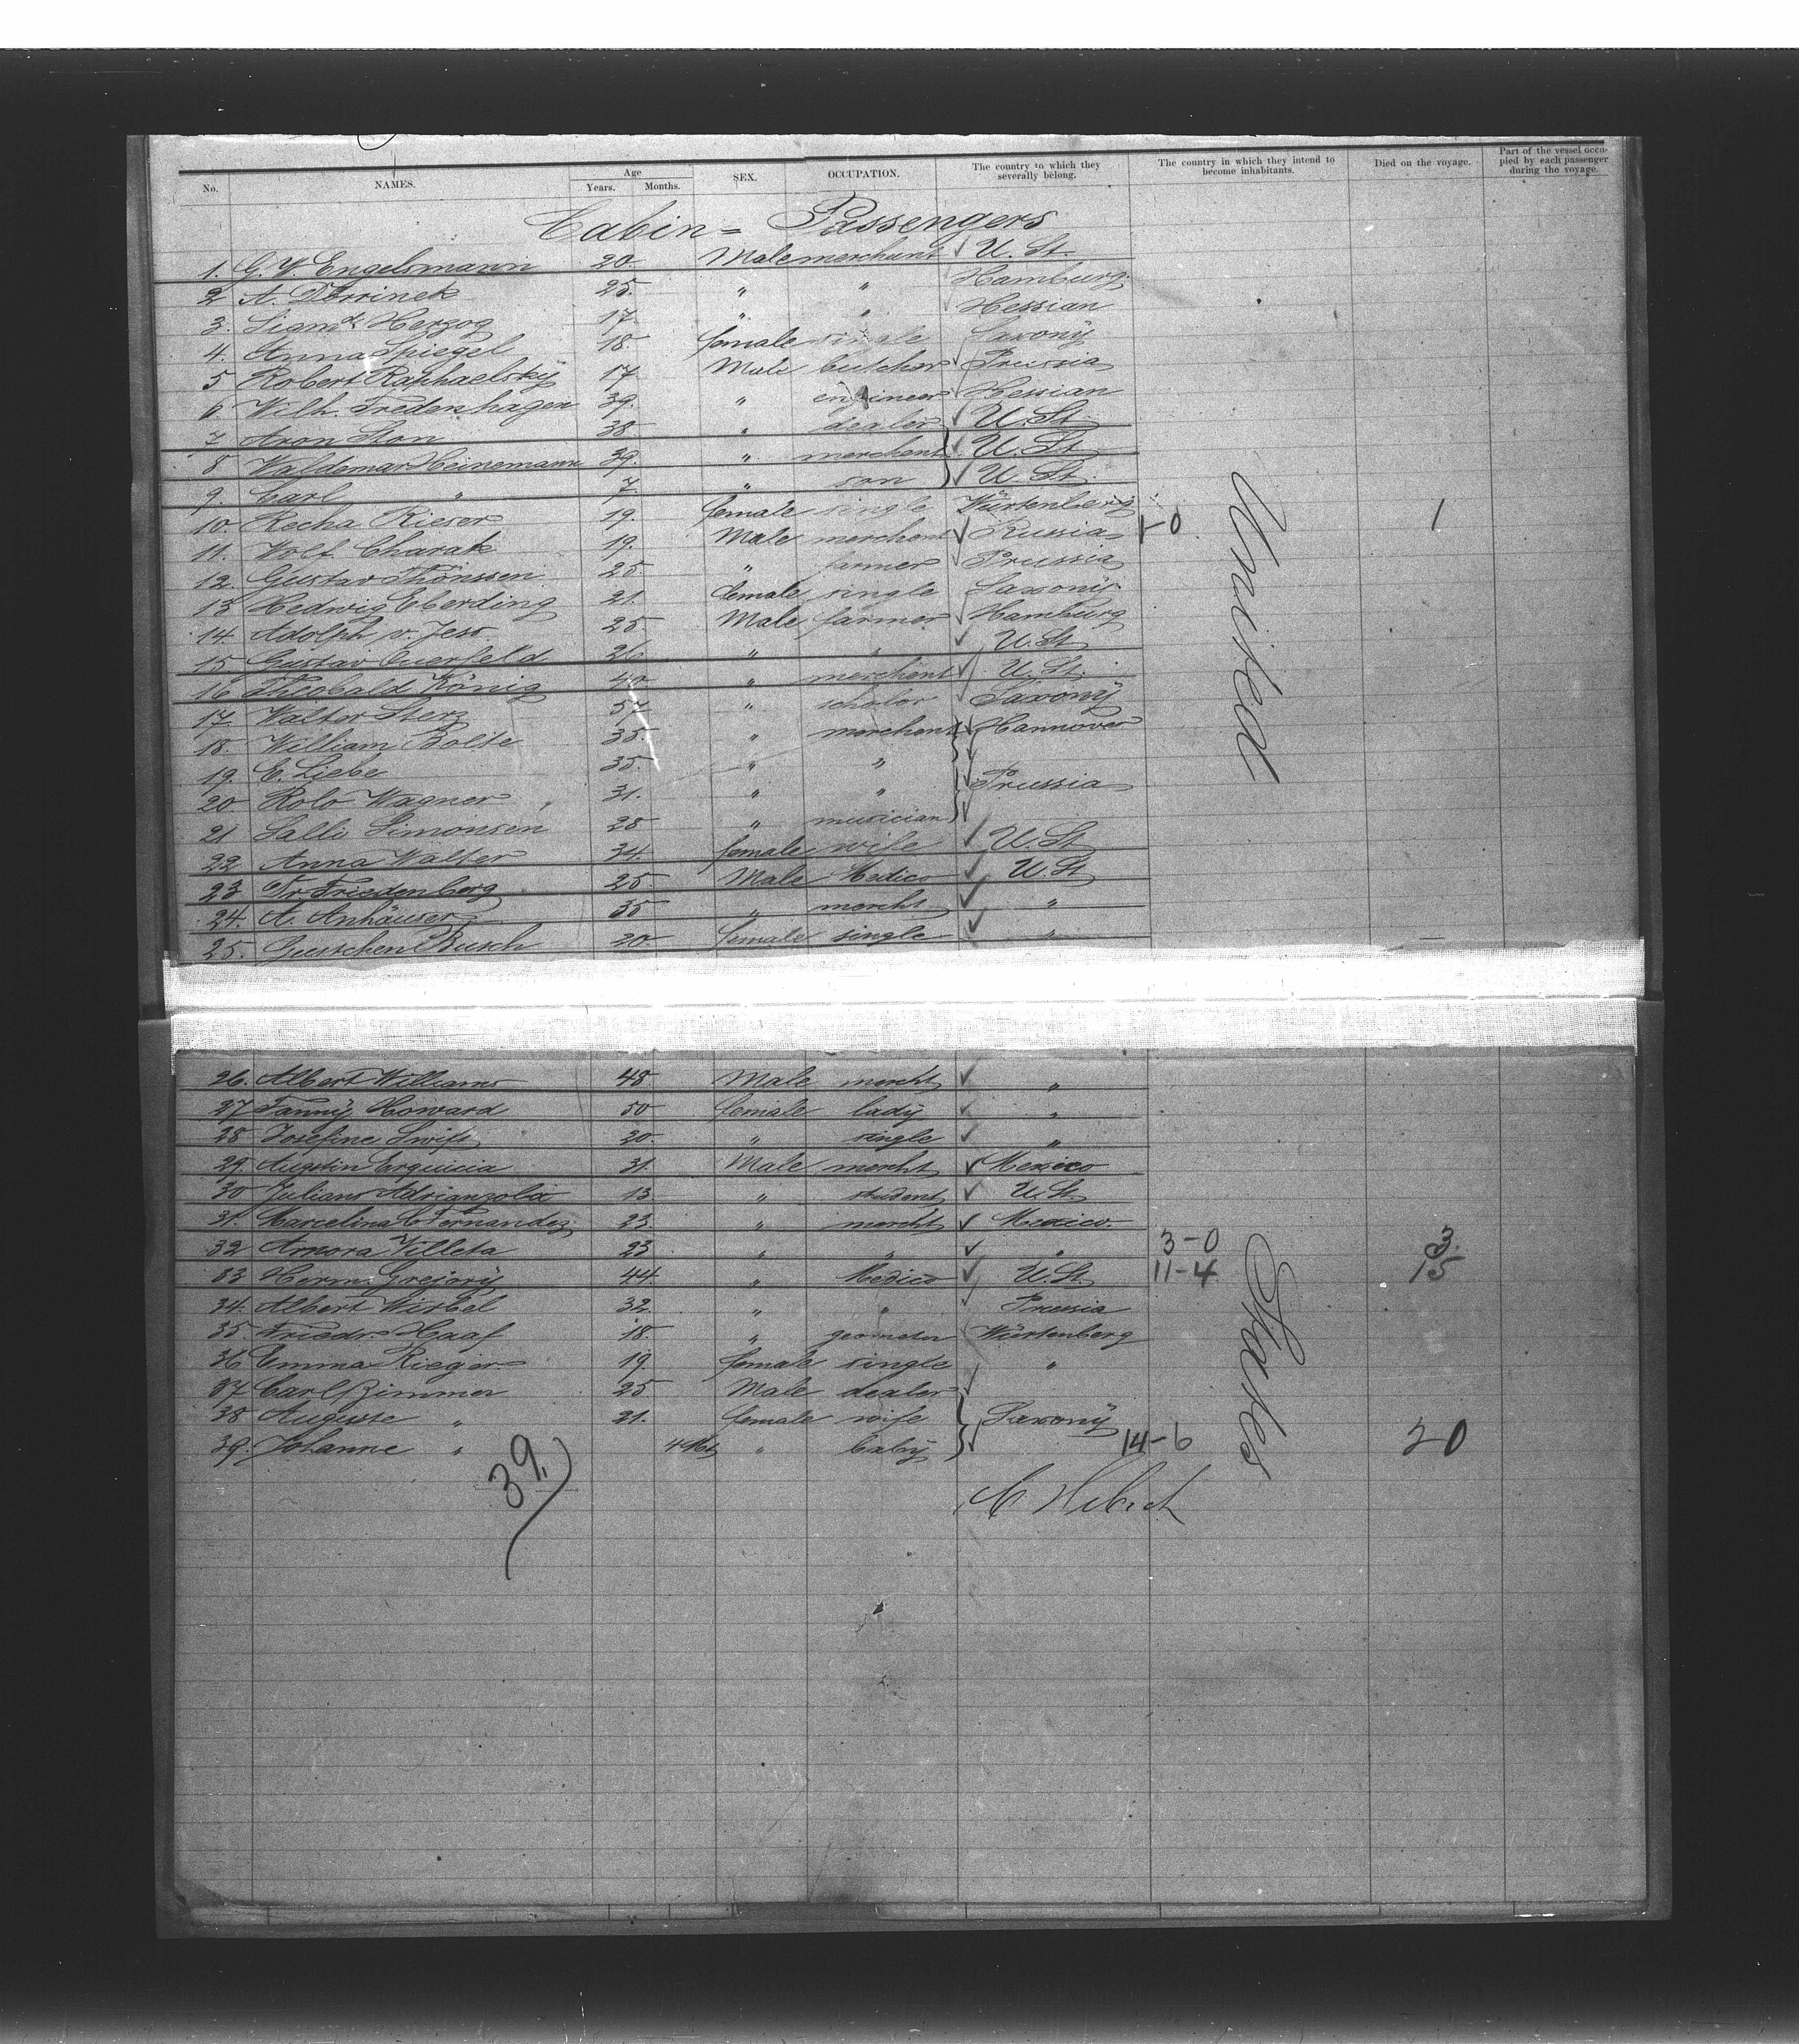 No. NAMES. Age Years. Months. SEX. OCCUPATION. The country to which they severally belong. The country in which they intend to become inhabitants. Died on the voyage. Part of the vessel occupied by each passenger during the voyage.
Cabin = Passengers
1. G. V. Engelsmann 20. Male merchant ✓ U. St.
2 A. 25. " " Hamburg
3. Sigmd. Herzog 17. " " Hessian
4. Anna Spiegel 18. female single Saxony
5 Robert Raphaelsky 17. Male butcher Prussia
6 Wilh. Fredenhagen 39. " engineer Hessian
7 Aron Ston 38. " dealer ✓ U. St.
8 Waldemar Heinemann 39. " merchant ✓ U. St.
9. Carl " 7. " son ✓ U. St.
10. Recha Rieser 19. female single Würtenberg
11. Wolf Charak 19. Male merchant ✓ Russia 1-0 1
12. Gustav Thönssen 25. " farmer ✓ Prussia
13 Hedwig Eberding 21. female single Saxony
14. Adolph v. Jess 25. Male farmer Hamburg
15 Gustav Querfeld 26 " " ✓ U. St.
16 Theobald König 40. " merchant ✓ U. St.
17. Walter Sterz 57 " scholar Saxony
18. William Bolte 35. " merchant ✓ Hannover
19. E. Liebe 35. " " ✓
20 Rolo Wagner 31. " " ✓ Prussia
21 Salli Simonsen 28 " musician ✓
22 Anna Walter 34. female wife ✓ U. St.
23 Fr. Friedenberg 25. Male Medico ✓ U. St.
24. A. Anhäuser 35 " mercht ✓ "
25. Gustchen Busch 20 female single ✓ "
26. Albert Williams 48 Male mercht ✓ "
27 Fanny Howard 50 female lady ✓ "
28 Josefine Swift 20. " single ✓ "
29. Augstin Erquicia 31. Male mercht ✓ Mexico
30 Juliano Adrianzola 13 " student ✓ U. St.
31. Marcelina C Fernandez 23. " mercht ✓ Mexico.
32 Villeta 23 " " ✓ " 3-0 3.
33 Herm. Grejory 44. " Medico ✓ U. St. 11-4 15
34. Albert Wirbel 32. " " Prussia
35. Friedr. Haaf 18. " geometer Würtenberg
36 Emma Rieger 19. female single "
37 Carl Zimmer 25 Male dealer ✓
38 Auguste " 21. female wife Saxony
39. Johanne " 4 Mts " baby ✓ 14-6 20
United States
39.